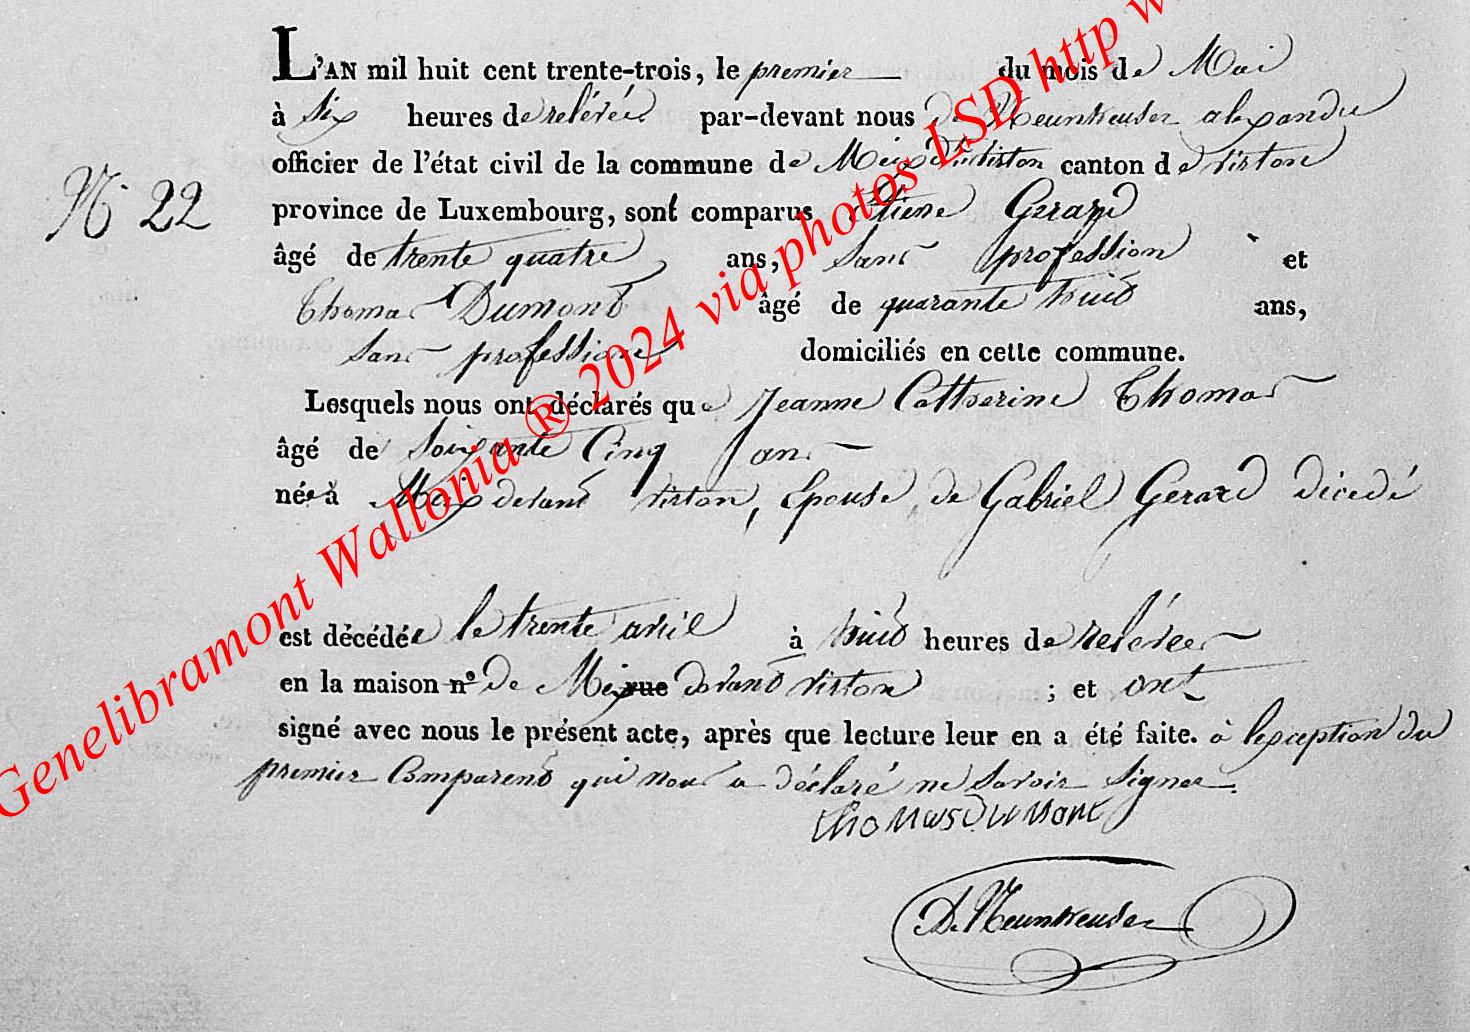 L'AN mil huit cent trente-trois, le premier du mois de Mai
à six heures de relévée par-devant nous de Neunheuser alexandre
officier de l'état civil de la commune de Meix dvt virton canton de virton
N° 22
province de Luxembourg, sont comparus Etiene Gerard
âgé de trente quatre ans, sans profession et
Thomas Dumont âgé de quarante huit ans,
sans profession domiciliés en cette commune.
Lesquels nous ont déclarés que Jeanne Catherine Thomas
âgé de soixante Cinq ans
née à Meix devant virton, Epouse de Gabriel Gerard décedé
est décédée le trente avril à huit heures de relévée
en la maison n° de Meix rue devant virton ; et ont
signé avec nous le présent acte, après que lecture leur en a été faite. à lexception du
premier Comparent qui nous a déclaré ne savoir signer.
thomas Dumont
D. Neunheuser
Genelibramont Wallonia ® 2024 via photos LSD http w